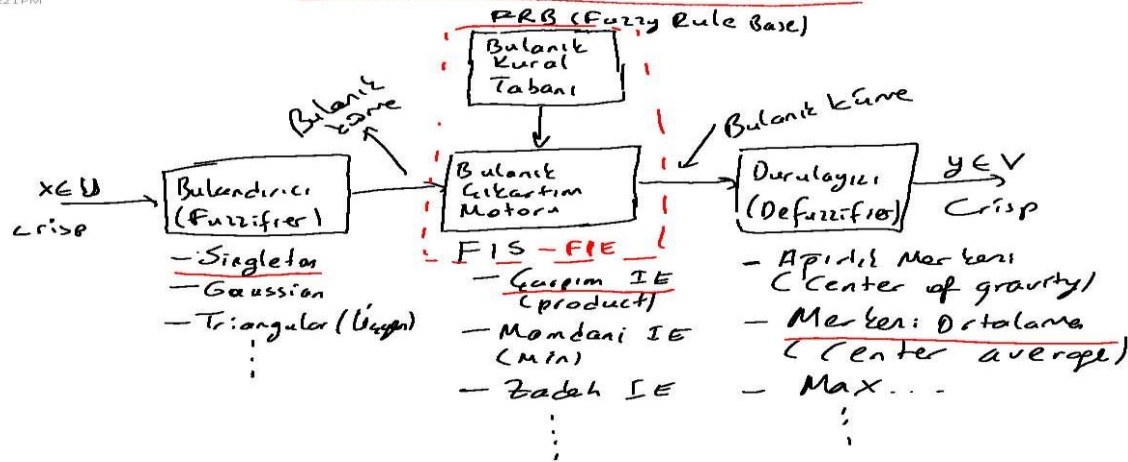 21PM
FRB (Fuzzy Rule Base)
Bulanık
Kural
Tabanı
Bulanık
küme
Bulanık küme
x∈U
crisp
Bulandırıcı
(Fuzzifier)
Bulanık
Çıkartım
Motoru
Durulayıcı
(Defuzzifier)
y∈V
Crisp
FIS - FIE
- Singleton
- Gaussian
- Triangular (Üçgen)
- Çarpım IE
(product)
- Mamdani IE
(Min)
- Zadeh IE
- Ağırlık Merkezi
(Center of gravity)
- Merkezi Ortalama
(Center average)
- Max...